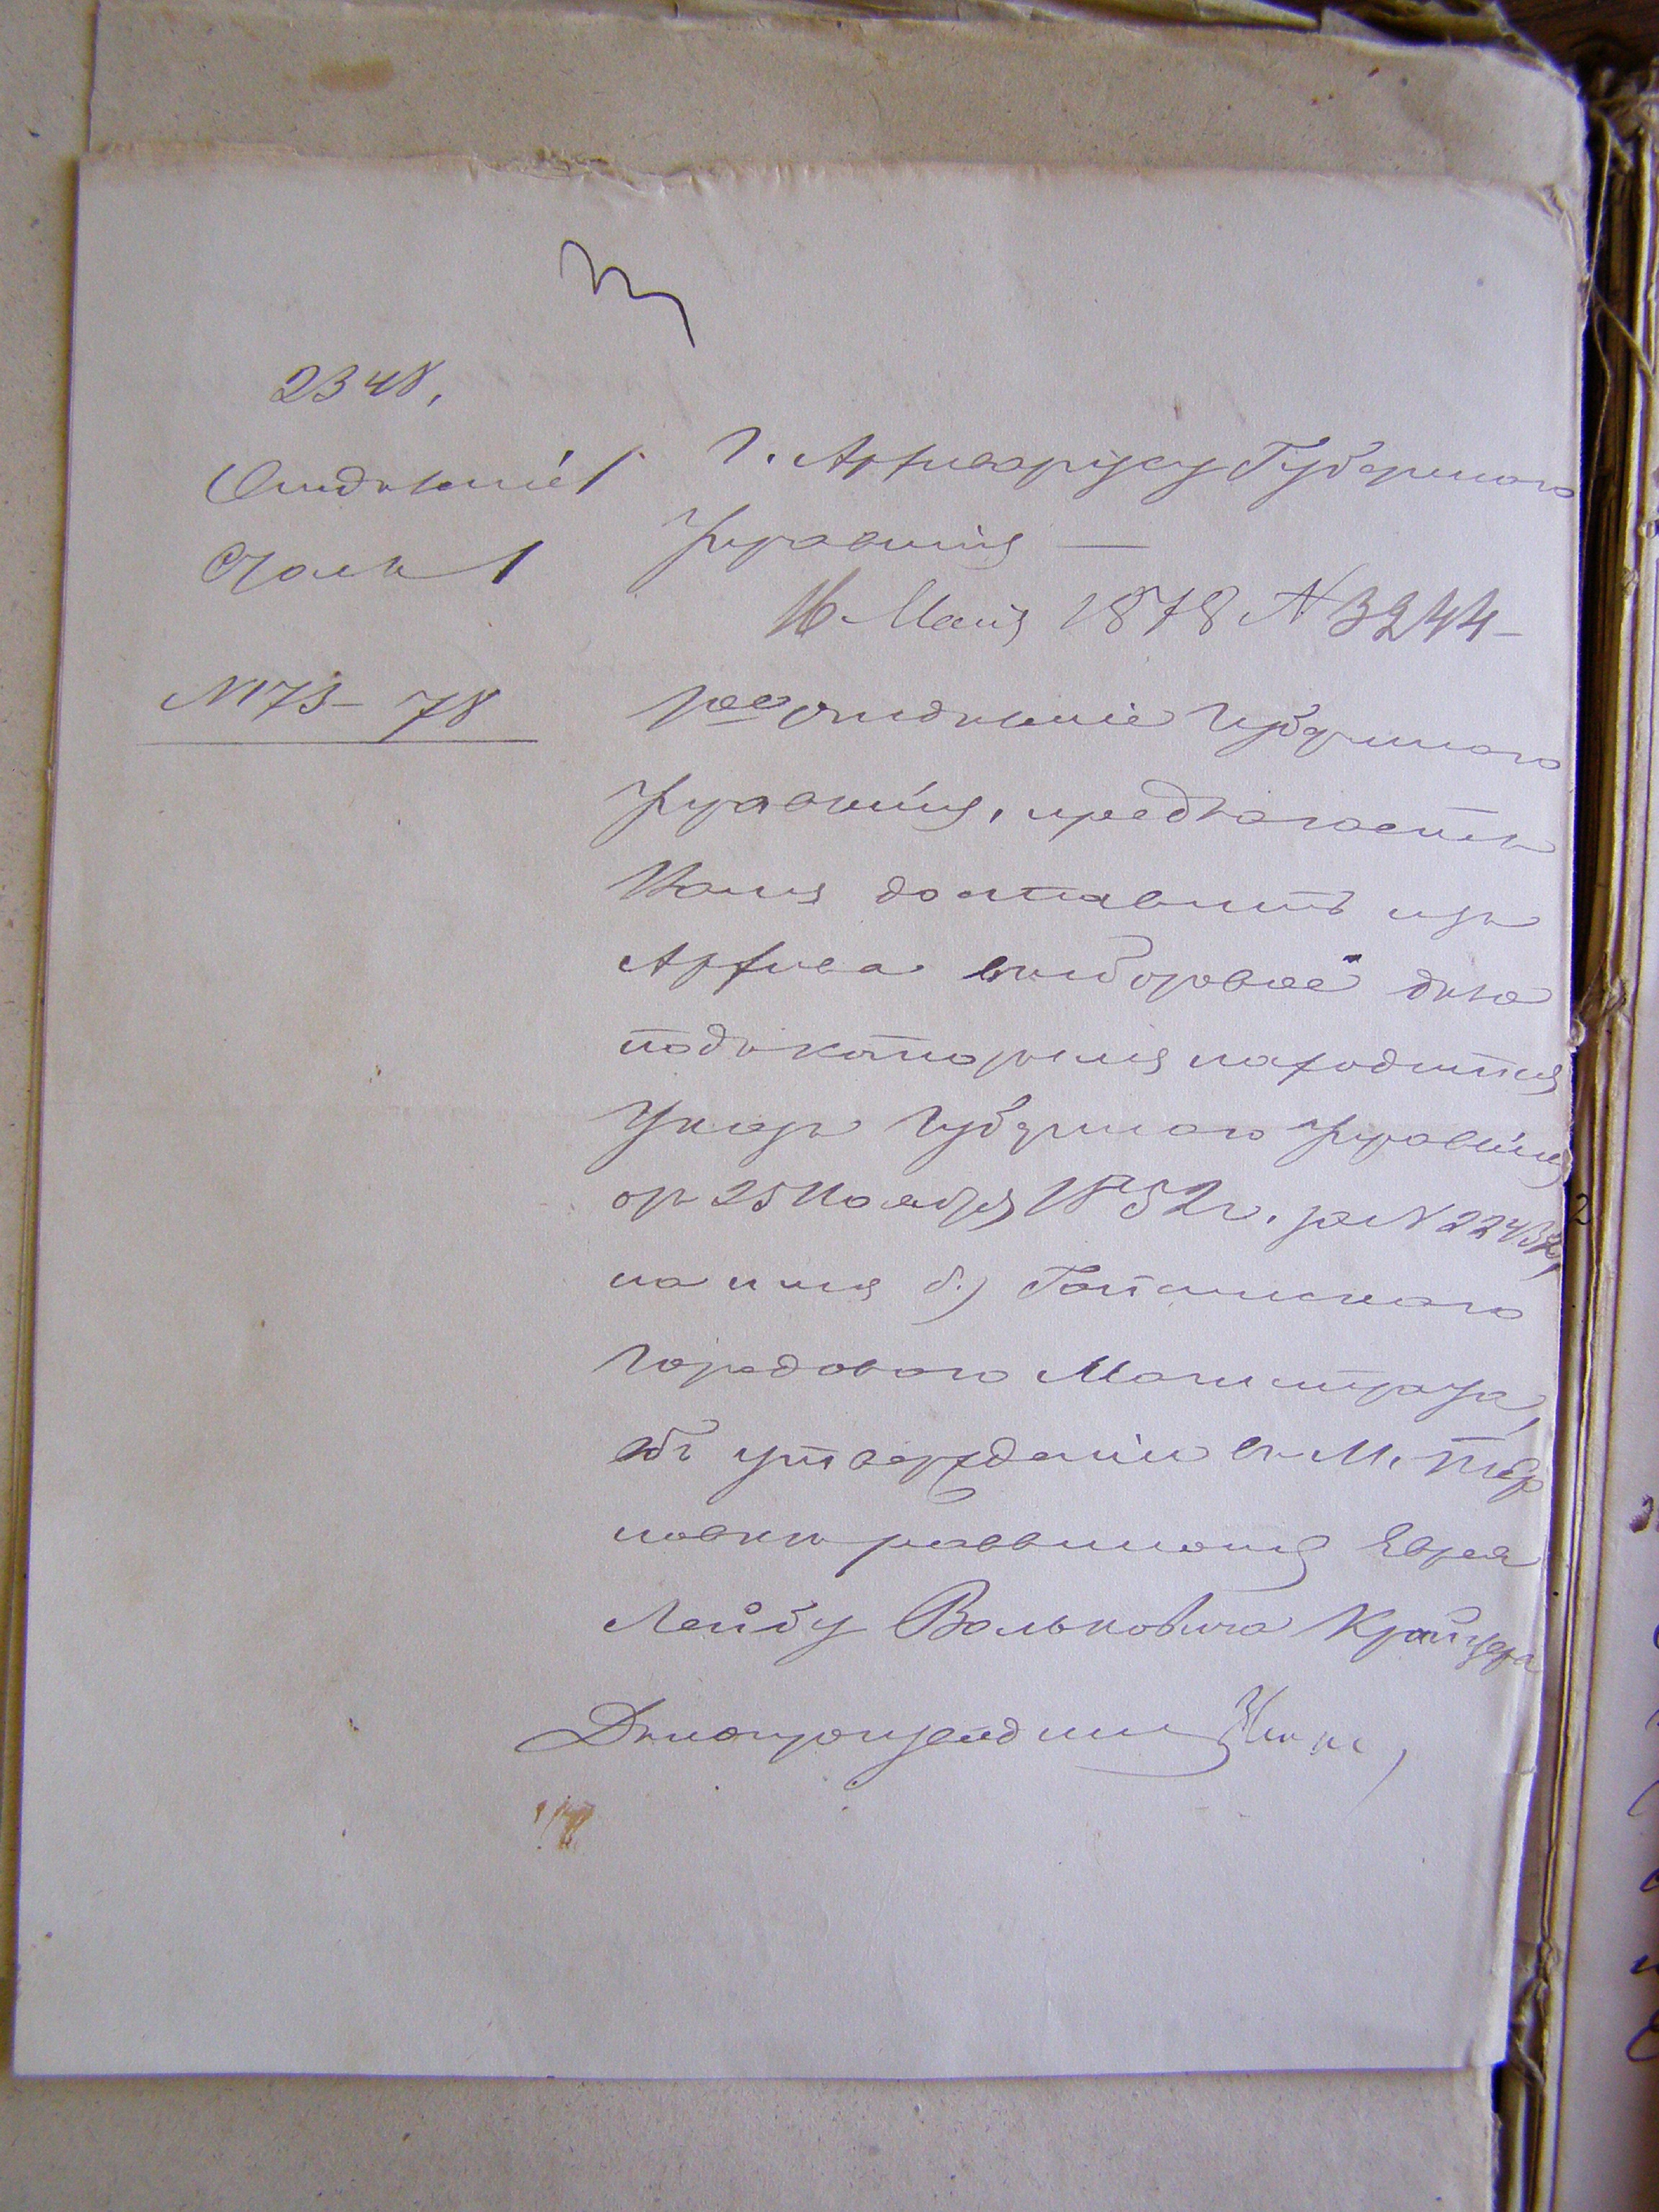 2348.
Отдѣленіе 1
Столъ 1
N 173-78
Г. Архиваріусу Губернскаго
Правленія —
16 Мая 1878 N 3244
1ое отдѣленіе Губернскаго
Правленія, предлагаетъ
Вамъ доставить изъ
Архива выборовое дѣло
подъ которымъ находится
Указъ Губернскаго Правленія
отъ 25 Ноября 1852 г. за N
на имя б.) Гайсинскаго
Городоваго Магистрата,
объ утвержденіи въ М. Тер
новкѣ раввиномъ Еврея
Лейбу Вольковича Крайцера
Дѣлопроизводитель